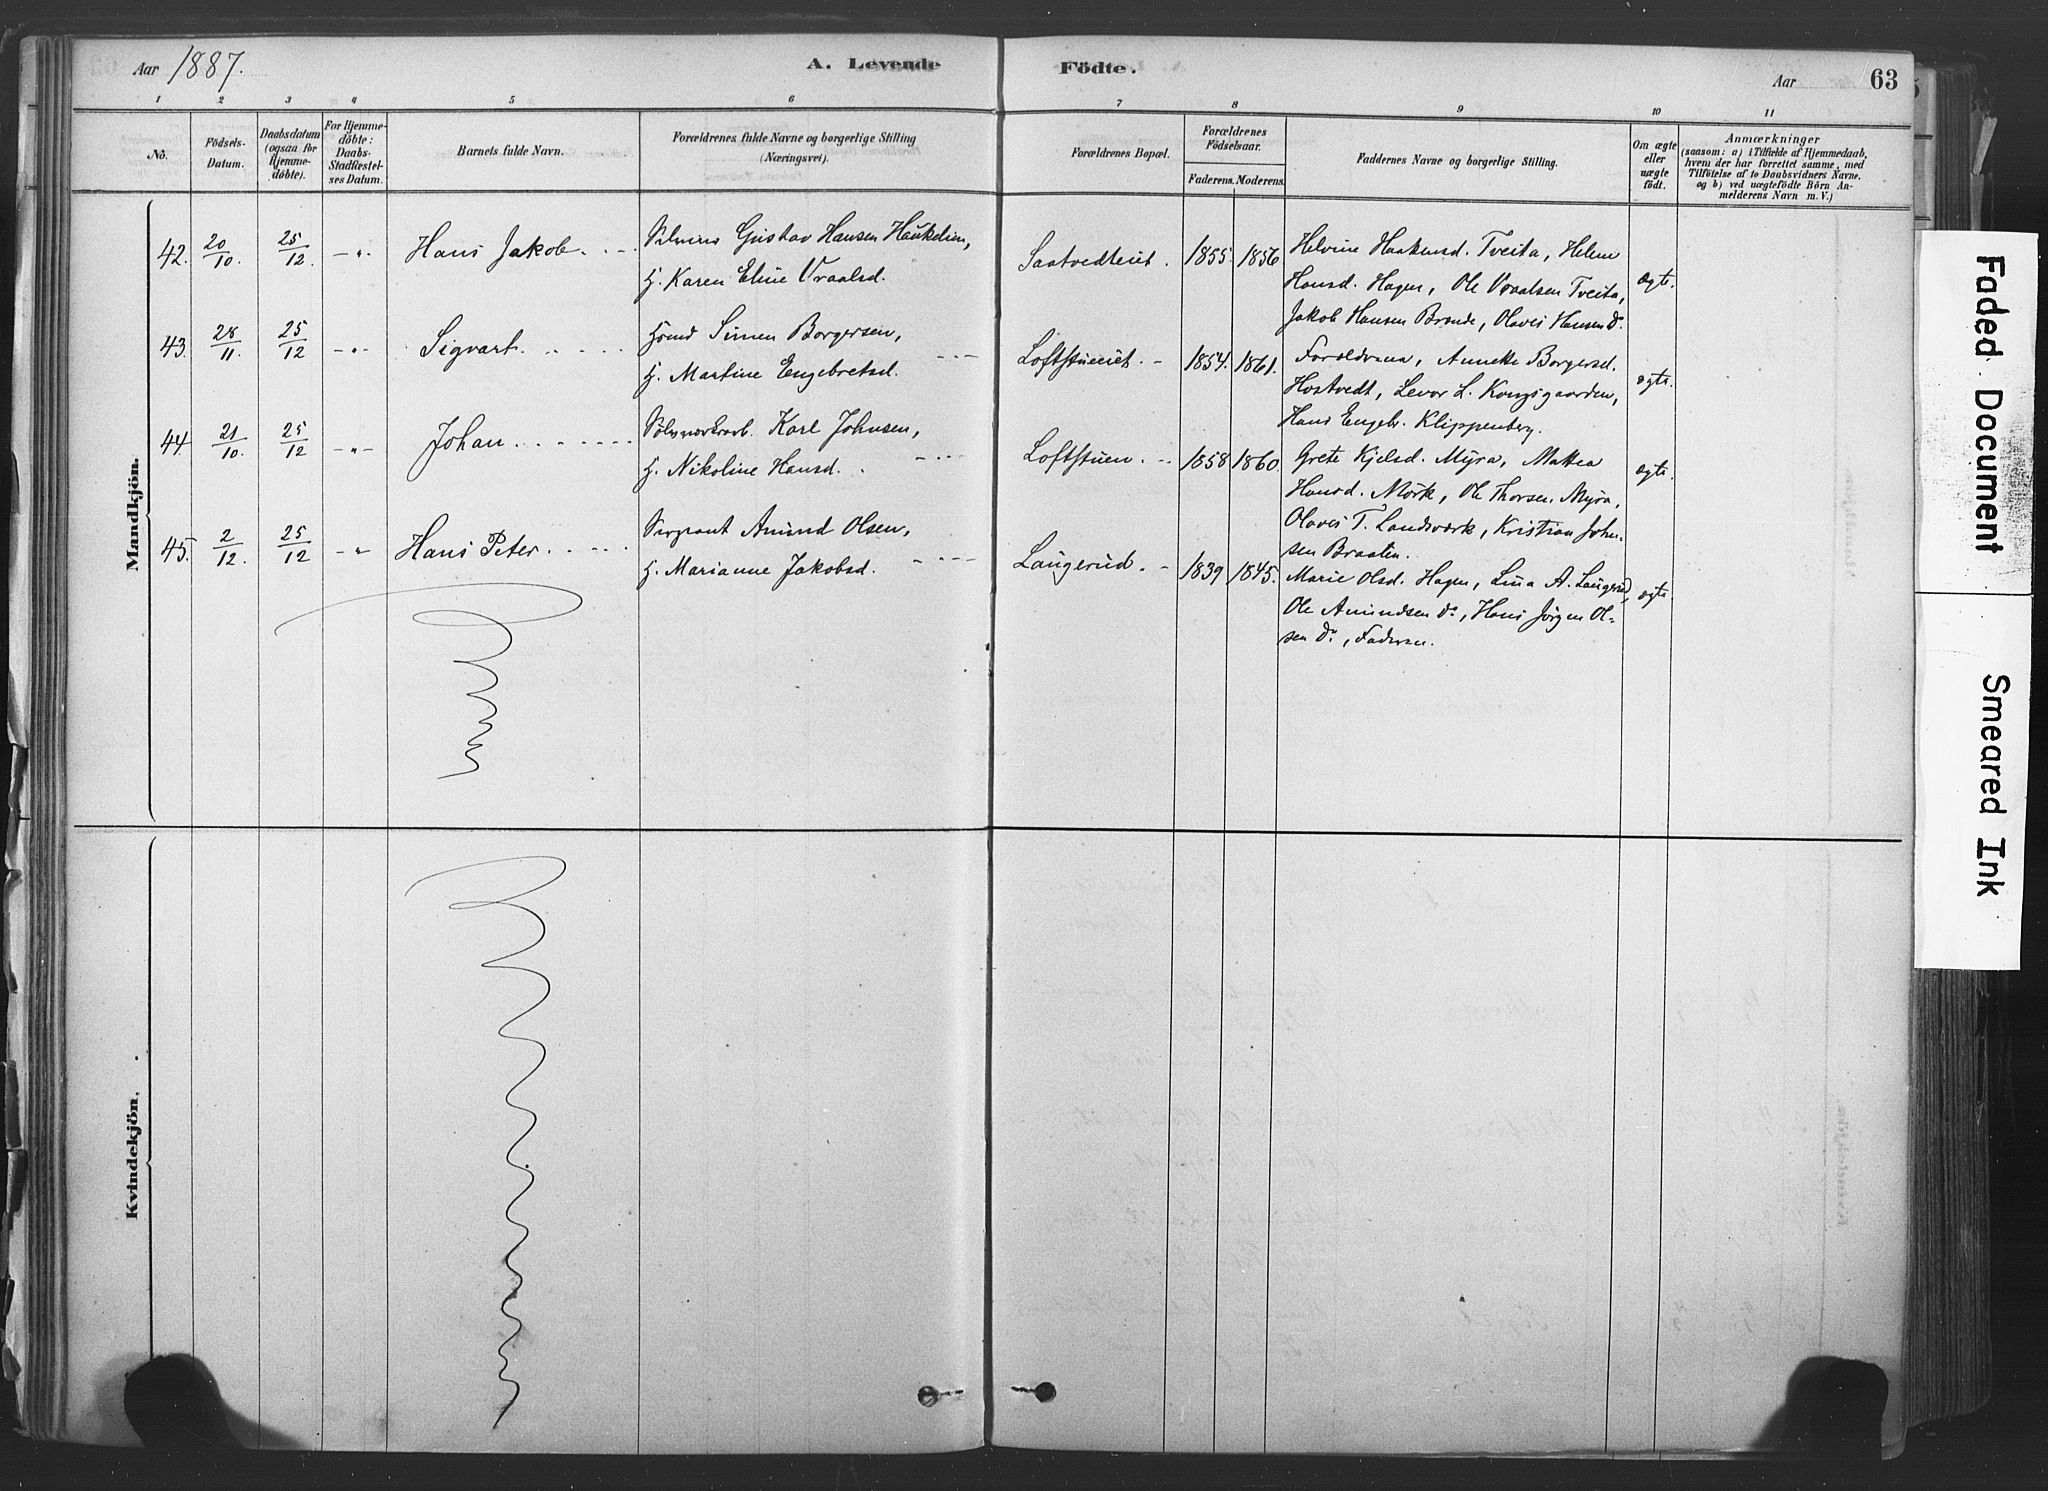 Aar 1887.
A. Levende
Födte.
Aar 63
1 2 3 4 5 6 7 8 9 10 11
No.
Födsels-
Datum.
Daabsdatum
(ogsaa for
Hjemme-
döbte).
For Hjemme-
döbte:
Daabs-
Stadfæstel-
ses Datum.
Barnets fulde Navn.
Forældrenes fulde Navne og borgerlige Stilling
(Næringsvei).
Forældrenes Bopæl.
Forældrenes
Födselsaar.
Faderens. Moderens.
Faddernes Navne og borgerlige Stilling.
Om ægte
eller
uægte
födt.
Anmærkninger
(saasom: a) i Tilfælde af Hjemmedaab,
hvem der har forrettet samme, med
Tilföielse af to Daabsvidners Navne.
og b) ved uægtefödte Börn An-
melderens Navn m. V.)
Mandkjön.
42. 20/10. 25/12. -"-
Hans Jakob.
Gustav Hansen Haukelien,
H. Karen Eline Vraalsd.
1855. 1856
Helvine Haakensd. Tveita, Helene
Hansd. Hagen, Ole Vraalsen Tveita,
Jakob Hansen Brånde, Olavis Hansen do.
ægte.
43. 28/11. 25/12 -"-
Sigvart.
Simen Borgersen,
H. Martine Engebretsd.
Loftstueeiet.
1854. 1861.
Forældrene, Anneke Borgersd.
Hostvedt, Levor L. Kongsgaarden,
Hans Engebr. Klippenberg.
ægte.
44 21/10. 25/12 -"-
Johan
Sölvværksarb. Karl Johnsen,
H. Nikoline Hansd.
Loftstuen.
1858 1860.
Grete Kjelsd. Myra, Mattea
Hansd. Mörk, Ole Thorsen Myra,
Olavis T. Landsværk, Kristian John-
sen Braaten.
ægte.
45. 2/12. 25/12 -"
Hans Peter
Sergeant Amund Olsen,
H. Marianne Jakobsd.
Laugerud.
1839 1845.
Marie Olsd. Hagen, Lina A. Laugerud,
Ole Amundsen do, Hans Jörgen Ol-
sen do, Faderen.
ægte
Kvindekjön.
Faded Document
Smeared Ink